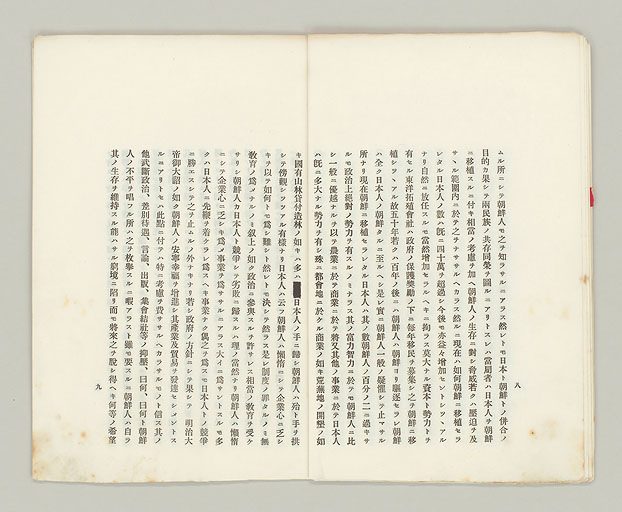 八
ムル所ニシテ朝鮮人モ之ヲ知ラサルニアラス然レトモ日本ト朝鮮トノ併合ノ
目的カ果シテ兩民族ノ共存同榮ヲ圖ルニアリトスレハ當局者ハ日本人ヲ朝鮮
ニ移植スルニ付キ相當ノ考慮ヲ加ヘ朝鮮人ノ生存ニ對シ脅威若クハ壓迫ヲ及
サヽル範圍內ニ於テ之ヲナサヽルヘカラス然ルニ現在ハ如何朝鮮ニ移植セラ
レタル日本人ノ數ハ旣ニ四十萬ヲ超過シ今後モ亦益々增加セントシツヽアル
ナリ自然ニ放任スルモ當然增加セラルヘキニ拘ラス莫大ナル資本ト勢力トヲ
有セル東洋拓殖會社ハ政府ノ保護獎勵ノ下ニ每年移民ヲ募集シ之ヲ朝鮮ニ移
植シツヽアル故五十年若クハ百年ノ後ニハ朝鮮人ハ朝鮮ヨリ驅逐セラレ朝鮮
ハ全ク日本人ノ朝鮮タルニ至ルヘシ是レ實ニ朝鮮人一般ノ疑懼シテ止マサル
所ナリ現在朝鮮ニ移植セラレタル日本人ハ其ノ數朝鮮人ノ百分ノ二ニ過キサ
ルモ政治上絕對ノ勢力ヲ有スルノミナラス其ノ富力智力ニ於テモ朝鮮人ニ比
シ一般ニ優越ナルヲ以テ農業ニ於テ商業ニ於テ將又其他ノ事業ニ於テ日本人
ハ旣ニ多大ナル勢力ヲ有シ殊ニ都會地ニ於ケル商業ノ如キ荒蕪地ノ開墾ノ如
キ國有山林貸付造林ノ如キハ多ハ日本人ノ手ニ歸シ朝鮮人ハ殆ト手ヲ拱
シテ傍觀シツツアル有樣ナリ日本人ハ云フ朝鮮人ハ懶惰ニシテ企業心ニ乏シ
キヲ以テ如何トモ爲シ難シト然レトモ決シテ然ラス是レ制度ノ罪タルノミ無
敎育ノ爲メナルノミ叙上ノ如ク政治ニ參與スルヲ許サレス相當ノ敎育ヲ受ケ
サリシ朝鮮人カ日本人ト競爭シテ劣敗ニ歸スルハ理ノ當然ナリ朝鮮人ハ懶惰
ニシテ企業心ニ乏シキ爲メ事業ヲナサヽルニアラス大イニ爲サントスルモ多
クハ日本人ニ先鞭ヲ着ケラレ爲スヘキ事業ナク偶之ヲ爲スモ日本人トノ競爭
ニ勝エスシテ之ヲ止ムルノ外ナキナリ若シ政府ノ方針ニシテ果シテ 明治大
帝御大詔ノ如ク朝鮮人ノ安寧幸福ヲ增進シ其產業及貿易ヲ發達セシメントス
ルニアリトセハ此點ニ付テハ特ニ考慮ヲ費サヽルヘカラサルモノト信ス其ノ
他武斷政治、差別待遇、言論、出版、集會結社等ノ抑壓、曰何、曰何ト朝鮮
人ノ不平ヲ唱フル所ハ之ヲ枚擧スルニ暇アラスト雖モ要スルニ朝鮮人ハ自ラ
其ノ生存ヲ維持スル能ハサル窮境ニ陷リ而モ將來之ヲ脫シ得ヘキ何等ノ希望
九